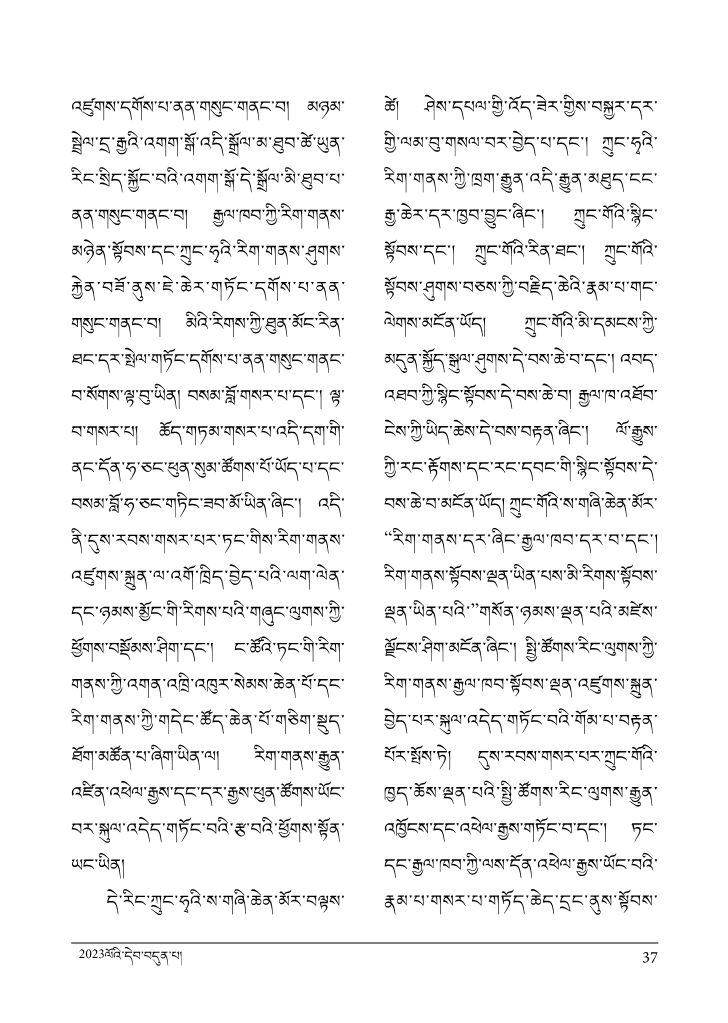 འཛུགས་དགོས་པ་ནན་གསུང་གནང་བ།  མཉམ་
སྦྲེལ་དྲ་རྒྱའི་འགག་སྒོ་འདི་སྒྲོལ་མ་ཐུབ་ཚེ་ཡུན་
རིང་སྲིད་སྐྱོང་བའི་འགག་སྒོ་དེ་སྒྲོལ་མི་ཐུབ་པ་
ནན་གསུང་གནང་བ།  རྒྱལ་ཁབ་ཀྱི་རིག་གནས་
མཉེན་སྟོབས་དང་ཀྲུང་ཧྭའི་རིག་གནས་ཤུགས་
རྐྱེན་བཟོ་ནུས་ཇེ་ཆེར་གཏོང་དགོས་པ་ནན་
གསུང་གནང་བ།  མིའི་རིགས་ཀྱི་ཐུན་མོང་རིན་
ཐང་དར་སྤེལ་གཏོང་དགོས་པ་ནན་གསུང་གནང་
བ་སོགས་ལྟ་བུ་ཡིན། བསམ་བློ་གསར་པ་དང་། ལྟ་
བ་གསར་པ།  ཚོད་གཏམ་གསར་པ་འདི་དག་གི་
ནང་དོན་ཧ་ཅང་ཕུན་སུམ་ཚོགས་པོ་ཡོད་པ་དང་
བསམ་བློ་ཧ་ཅང་གཏིང་ཟབ་མོ་ཡིན་ཞིང་།  འདི་
ནི་དུས་རབས་གསར་པར་ཏང་གིས་རིག་གནས་
འཛུགས་སྐྲུན་ལ་འགོ་ཁྲིད་བྱེད་པའི་ལག་ལེན་
དང་ཉམས་མྱོང་གི་རིགས་པའི་གཞུང་ལུགས་ཀྱི་
ཕྱོགས་བསྡོམས་ཤིག་དང་།  ང་ཚོའི་ཏང་གི་རིག་
གནས་ཀྱི་འགན་འཁྲི་འཁུར་སེམས་ཆེན་པོ་དང་
རིག་གནས་ཀྱི་གདེང་ཚོད་ཆེན་པོ་གཅིག་སྡུད་
ཐོག་མཚོན་པ་ཞིག་ཡིན་ལ།  རིག་གནས་རྒྱུན་
འཛིན་འཕེལ་རྒྱས་དང་དར་རྒྱས་ཕུན་ཚོགས་ཡོང་
བར་སྐུལ་འདེད་གཏོང་བའི་རྩ་བའི་ཕྱོགས་སྟོན་
ཡང་ཡིན།
དེ་རིང་ཀྲུང་ཧྭའི་ས་གཞི་ཆེན་མོར་བལྟས་
ཚེ།  ཤེས་དཔལ་གྱི་འོད་ཟེར་གྱིས་བསྐྱར་དར་
གྱི་ལམ་བུ་གསལ་བར་བྱེད་པ་དང་།  ཀྲུང་ཧྭའི་
རིག་གནས་ཀྱི་ཁྲག་རྒྱུན་འདི་རྒྱུན་མཐུད་ངང་
རྒྱ་ཆེར་དར་ཁྱབ་བྱུང་ཞིང་།  ཀྲུང་གོའི་སྙིང་
སྟོབས་དང་།  ཀྲུང་གོའི་རིན་ཐང་།  ཀྲུང་གོའི་
སྟོབས་ཤུགས་བཅས་ཀྱི་བརྗིད་ཆེའི་རྣམ་པ་གང་
ལེགས་མངོན་ཡོད།  ཀྲུང་གོའི་མི་དམངས་ཀྱི་
མདུན་སྐྱོད་སྐུལ་ཤུགས་དེ་བས་ཆེ་བ་དང་། འབད་
འཐབ་ཀྱི་སྙིང་སྟོབས་དེ་བས་ཆེ་བ། རྒྱལ་ཁ་འཐོབ་
ངེས་ཀྱི་ཡིད་ཆེས་དེ་བས་བརྟན་ཞིང་།  ལོ་རྒྱུས་
ཀྱི་རང་རྟོགས་དང་རང་དབང་གི་སྙིང་སྟོབས་དེ་
བས་ཆེ་བ་མངོན་ཡོད། ཀྲུང་གོའི་ས་གཞི་ཆེན་མོར་
“རིག་གནས་དར་ཞིང་རྒྱལ་ཁབ་དར་བ་དང་།
རིག་གནས་སྟོབས་ལྡན་ཡིན་པས་མི་རིགས་སྟོབས་
ལྡན་ཡིན་པའི་”གསོན་ཉམས་ལྡན་པའི་མཛེས་
ལྗོངས་ཤིག་མངོན་ཞིང་། སྤྱི་ཚོགས་རིང་ལུགས་ཀྱི་
རིག་གནས་རྒྱལ་ཁབ་སྟོབས་ལྡན་འཛུགས་སྐྲུན་
བྱེད་པར་སྐུལ་འདེད་གཏོང་བའི་གོམ་པ་བརྟན་
པོར་སྤོས་ཏེ།  དུས་རབས་གསར་པར་ཀྲུང་གོའི་
ཁྱད་ཆོས་ལྡན་པའི་སྤྱི་ཚོགས་རིང་ལུགས་རྒྱུན་
འཁྱོངས་དང་འཕེལ་རྒྱས་གཏོང་བ་དང་།  ཏང་
དང་རྒྱལ་ཁབ་ཀྱི་ལས་དོན་འཕེལ་རྒྱས་ཡོང་བའི་
རྣམ་པ་གསར་པ་གཏོད་ཆེད་དྲང་ནུས་སྟོབས་
2023ལོའི་དེབ་བདུན་པ།
37